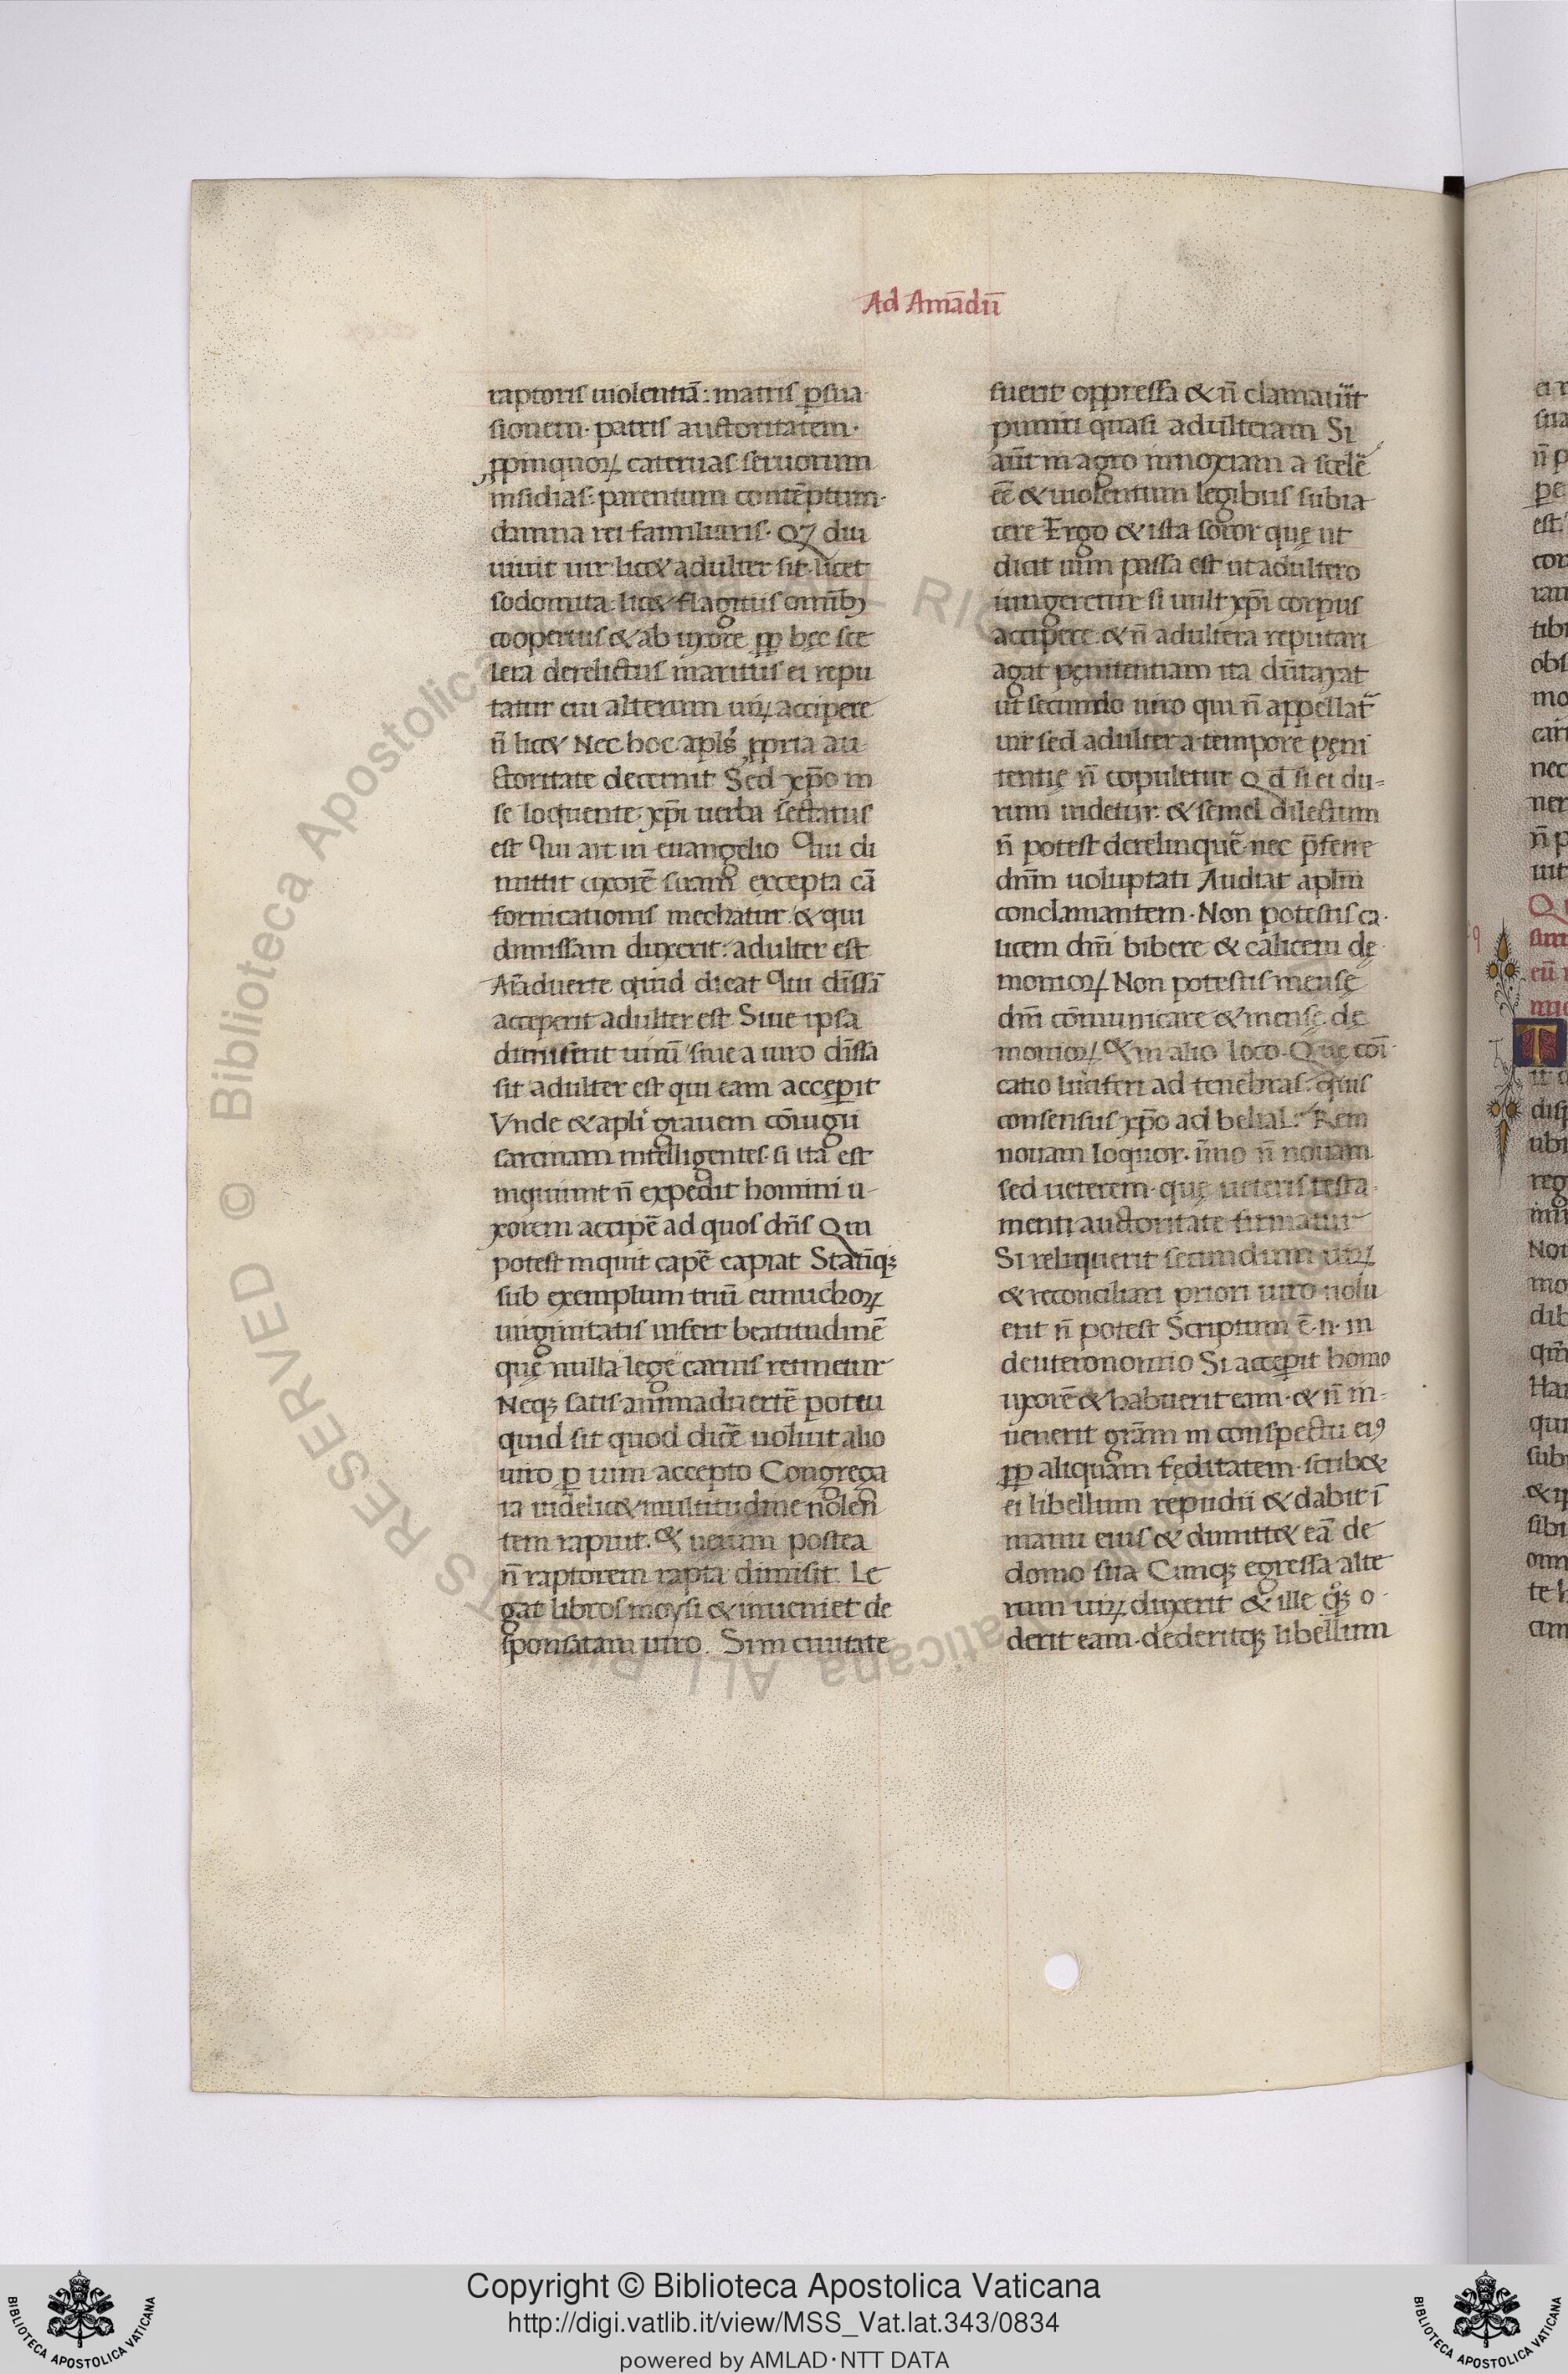 Ad Amãdũ
raptoris uiolentiã: matris ꝑsua
sionem· patris auctoritatem·
ꝓpinquoꝝ cateruas: seruorum
insidias: parentum contẽptum·
damna rei familiaris· Qꝫ diu
uiuit uir: lic& adulter sit· licet
sodomita: lic& flagitiis omĩbꝫ
coopertus & ab uxore ꝓp hęc sce
lera derelictus maritus ei repu
tatur cui alterum uiꝝ accipere
ñ lic& Nec hoc apl's ꝓpria au
ctoritate decernit Sed xp̃o in
se loquente: xp̃i uerba sectatus
est Qui ait in euangelio Qui di
mittit uxorẽ suam excepta cã
fornicationis mechatur: & qui
dimissam duxerit: adulter est
Aĩaduerte quid dicat Qui dĩssã
acceperit adulter est Siue ipsa
dimiserit uirũ siue a uiro dĩssa
sit adulter est qui eam acceꝑit
Vnde & apl'i grauem cõiugii
sarcinam intelligentes· si ita est
inquiunt ñ expedit homini u-
xorem accipẽ ad quos dñs Qui
potest inquit capẽ capiat Statĩqꝫ
sub exemplum triũ eunuchoꝝ
uirginitatis infert beatitudinẽ
quę nulla lege carnis retinetur
Neqꝫ satis animaduertẽ potui
quid sit quod dicẽ uoluit alio
uiro ꝑ uim accepto Congrega
ta uidelic& multitudine nolen
tem rapuit· & uerum postea
ñ raptorem rapta dimisit Le
gat libros moysi & inueniet de
sponsatam uiro. Si in ciuitate
fuerit oppressa & ñ clamauit
puniri quasi adulteram Si
aũt in agro innoxiam a scelẽ
eẽ & uiolentum legibus subia
cere Ergo & ista soror quę ut
dicit uim passa est ut adultero
iungeretur si uult xp̃i corpus
accipere & ñ adultera reputari
agat penitentiam ita dũtaxat
ut secundo uiro qui ñ appellat̃
uir sed adulter a tempore peni
tentię ñ copuletur Q d̃ si ei du-
rum uidetur: & semel dilectum
ñ potest derelinquẽ nec p̃ferre
dnm̃ uoluptati Audiat aplm̃
conclamantem· Non potestis ca·
licem dñi bibere & calicem dę
monioꝝ Non potestis mensę
dñi cõmunicare & mensę dę
monioꝝ & in alio loco· Que cõi
catio luciferi ad tenebras: quis
consensus xp̃o ad belial: Rem
nouam loquor· ĩmo ñ nouam
sed ueterem· quę ueteris testa
menti auctoritate firmatur
Si reliquerit secundum uiꝝ
& reconciliari priori uiro uolu
erit ñ potest Scriptum ẽ·n· in
deuteronomio Si acceꝑit homo
uxorẽ & habuerit eam· & ñ in-
uenerit grãm in conspectu eiꝰ
ꝓp aliquam fęditatem· scrib&
ei libellum repudii & dabit ĩ
manu eius & dimitt& eã de
domo sua Cunqꝫ egressa alte
rum uiꝝ duxerit & ille qꝫ o-
derit eam· dederitqꝫ libellum
Copyright © Biblioteca Apostolica Vaticana
http://digi.vatlib.it/view/MSS_Vat.lat.343/0834
powered by AMLAD·NTT DATA